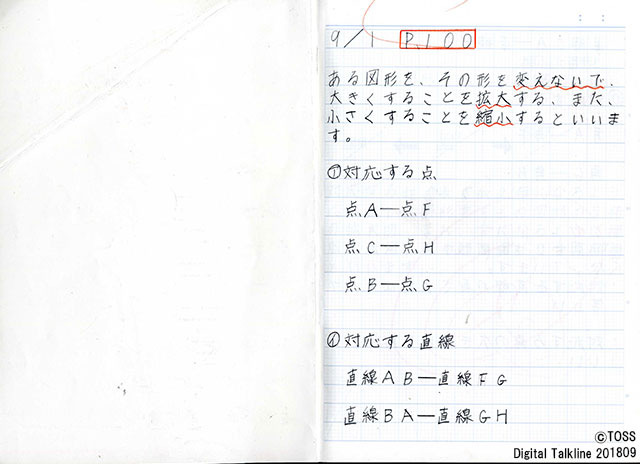 9/1 P.100
ある図形を、その形を変えないで、
大きくすることを拡大する、また、
小さくすることを縮小するといいま
す。
①対応する点
点A―点F
点C―点H
点B―点G
①対応する直線
直線AB―直線FG
直線BA―直線GH
©TOSS
Digital Talkline 201809